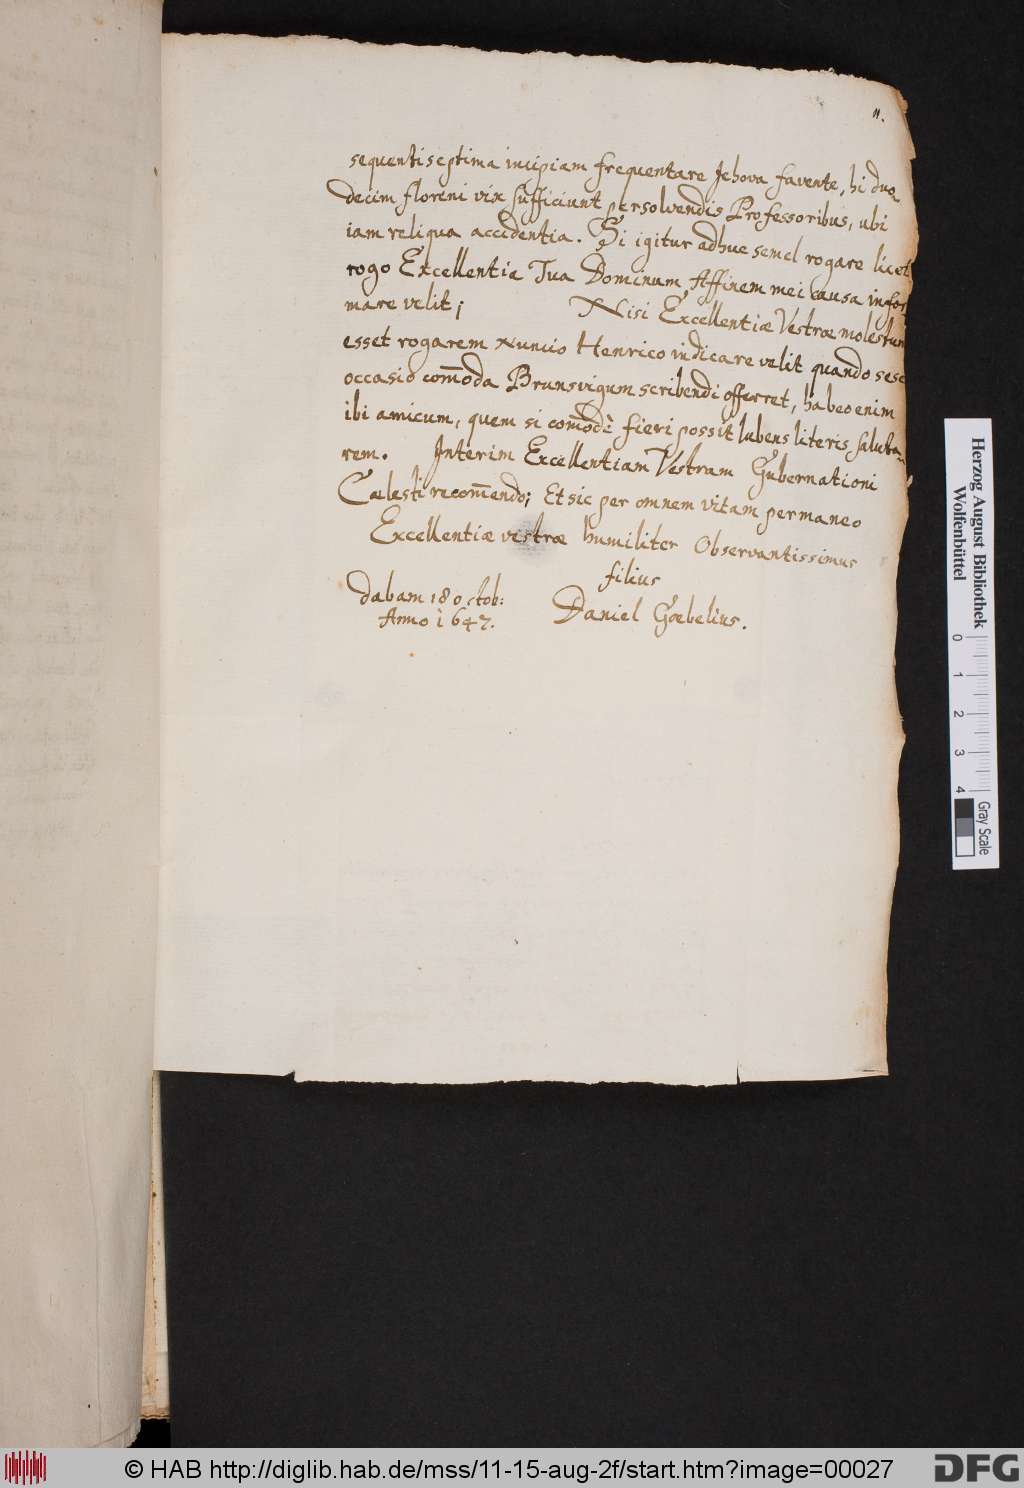 11.
sequenti septima incipiam frequentare Jehova favente, hi duo-
decim floreni vix sufficiunt persolvendis Professoribus, ubi
iam reliqua accidentia. Si igitur adhuc semel rogare licet
rogo Excellentia Tua Dominum Affinem mei causa infor-
mare velit; Nisi Excellentiæ Vestræ molestum
esset rogarem nuncio Henrico indicare velit quando sese
occasio com̄oda Brunsvigum scribendi offerret, habeo enim
ibi amicum, quem si com̄odè fieri possit lubens literis saluta-
rem. Interim Excellentiam Vestram Gubernationi
Cælesti recom̄endo; Et sic per omnem vitam permaneo
Excellentiæ vestræ humiliter Observantissimus
filius
Dabam 18 octob:
Anno 1647.
Daniel Gœbelius.
Herzog August Bibliothek
Wolfenbüttel
0 1 2 3 4
Gray Scale
© HAB http://diglib.hab.de/mss/11-15-aug-2f/start.htm?image=00027
DFG